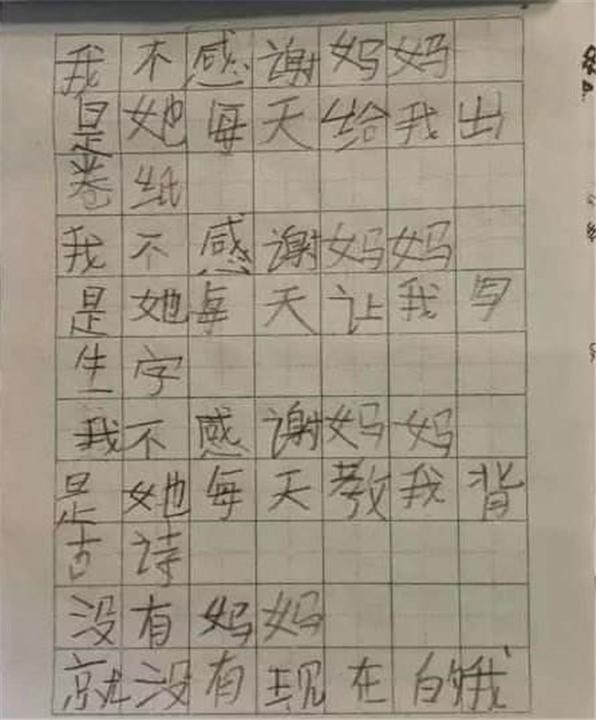 我不感谢妈妈
是她每天给我出
卷纸
我不感谢妈妈
是她每天让我写
生字
我不感谢妈妈
是她每天教我背
古诗
没有妈妈
就没有现在的我